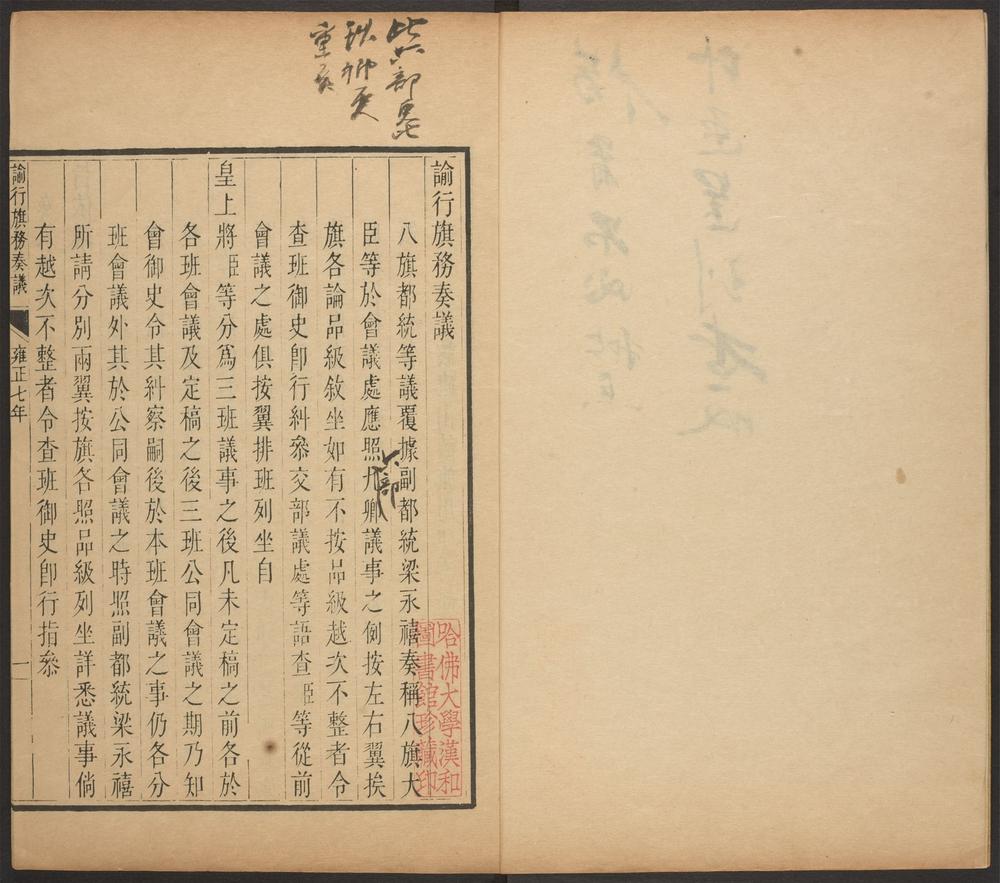 諭行旗務奏議
八旗都統等議覆據副都統梁永禧奏稱八旗大
臣等於會議處應照九卿議事之例按左右翼挨
六部
旗各論品級敘坐如有不按品級越次不整者令
查班御史卽行糾叅交部議處等語查臣等從前
會議之處俱按翼排班列坐自
皇上將臣等分爲三班議事之後凡未定稿之前各於
各班會議及定稿之後三班公同會議之期乃知
會御史令其糾察嗣後於本班會議之事仍各分
班會議外其於公同會議之時照副都統梁永禧
所請分別兩翼按旗各照品級列坐詳悉議事倘
有越次不整者令查班御史卽行指叅
諭行旗務奏議
雍正七年
一
哈佛大學漢和
圖書館珍藏印